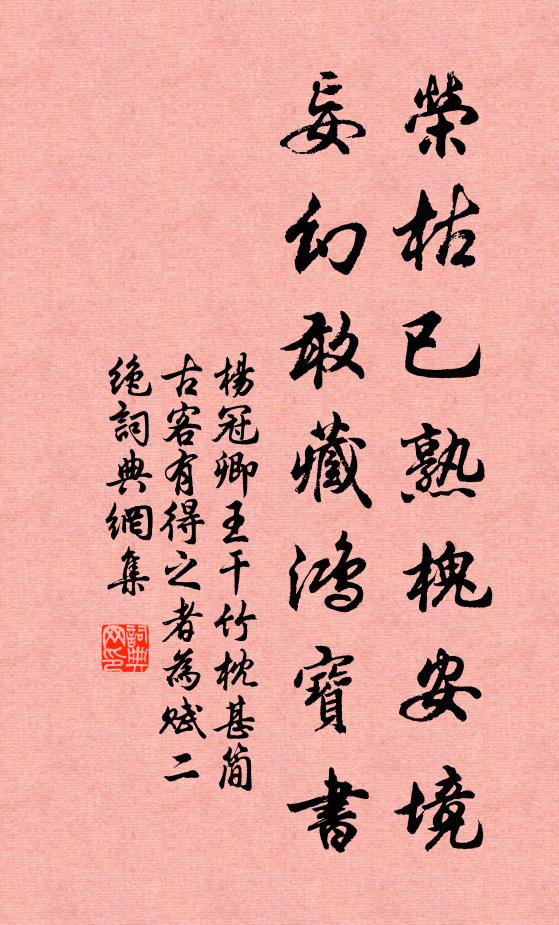 榮枯已熟槐安境
妄幻敢藏鴻寶書
楊冠卿王千竹枕甚簡
古客有得之者為賦二
絕詞典網集
詞典网印